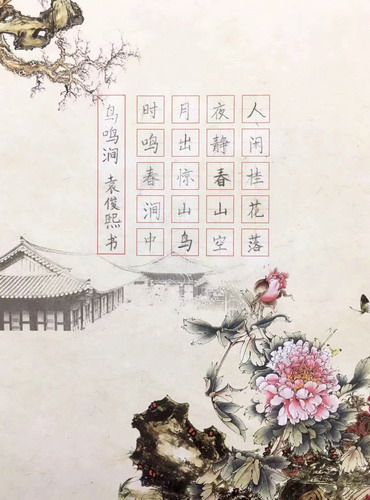 人闲桂花落
夜静春山空
月出惊山鸟
时鸣春涧中
鸟鸣涧 袁俊熙书